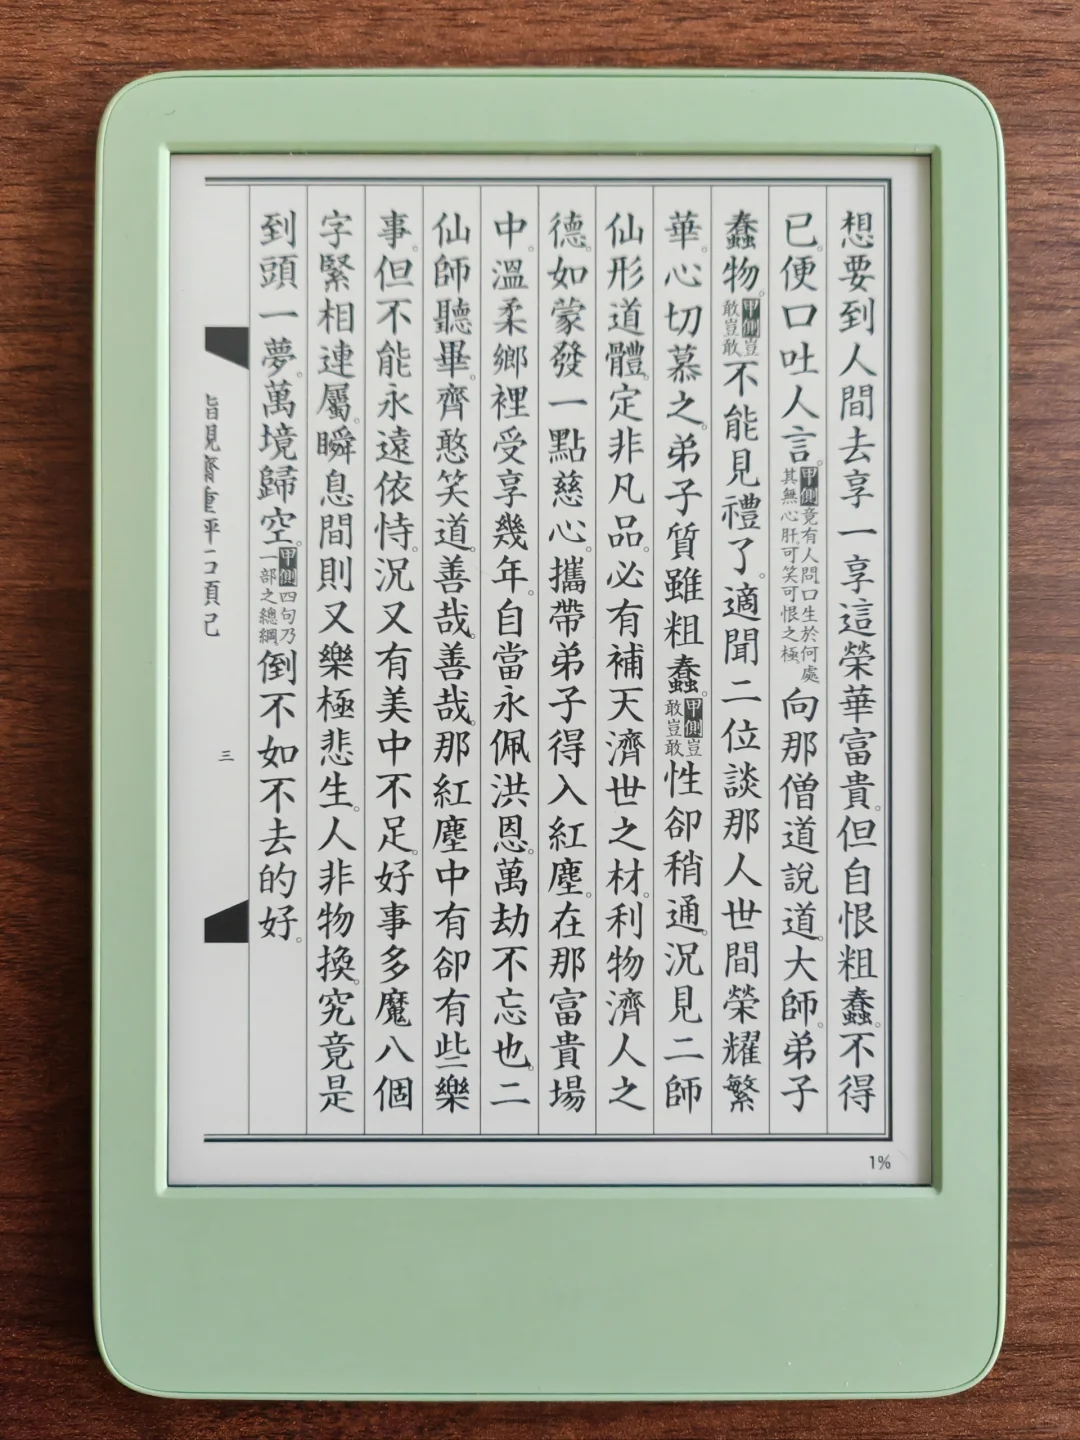 想要到人間去享一享這榮華富貴。但自恨粗蠢。不得
已。便口吐人言。甲側竟有人問口生於何處其無心肝可笑可恨之極。向那僧道說道。大師。弟子
蠢物。甲側豈敢豈敢不能見禮了。適聞二位談那人世間榮耀繁
華。心切慕之。弟子質雖粗蠢。甲側豈敢豈敢性卻稍通。況見二師
仙形道體。定非凡品。必有補天濟世之材。利物濟人之
德。如蒙發一點慈心。攜帶弟子得入紅塵。在那富貴場
中。溫柔鄉裡受享幾年。自當永佩洪恩。萬劫不忘也。二
仙師聽畢。齊憨笑道。善哉。善哉。那紅塵中有卻有些樂
事。但不能永遠依恃。況又有美中不足。好事多魔八個
字緊相連屬。瞬息間則又樂極悲生。人非物換。究竟是
到頭一夢。萬境歸空。甲側四句乃一部之總綱倒不如不去的好。
脂硯齋重評石頭記
三
1%